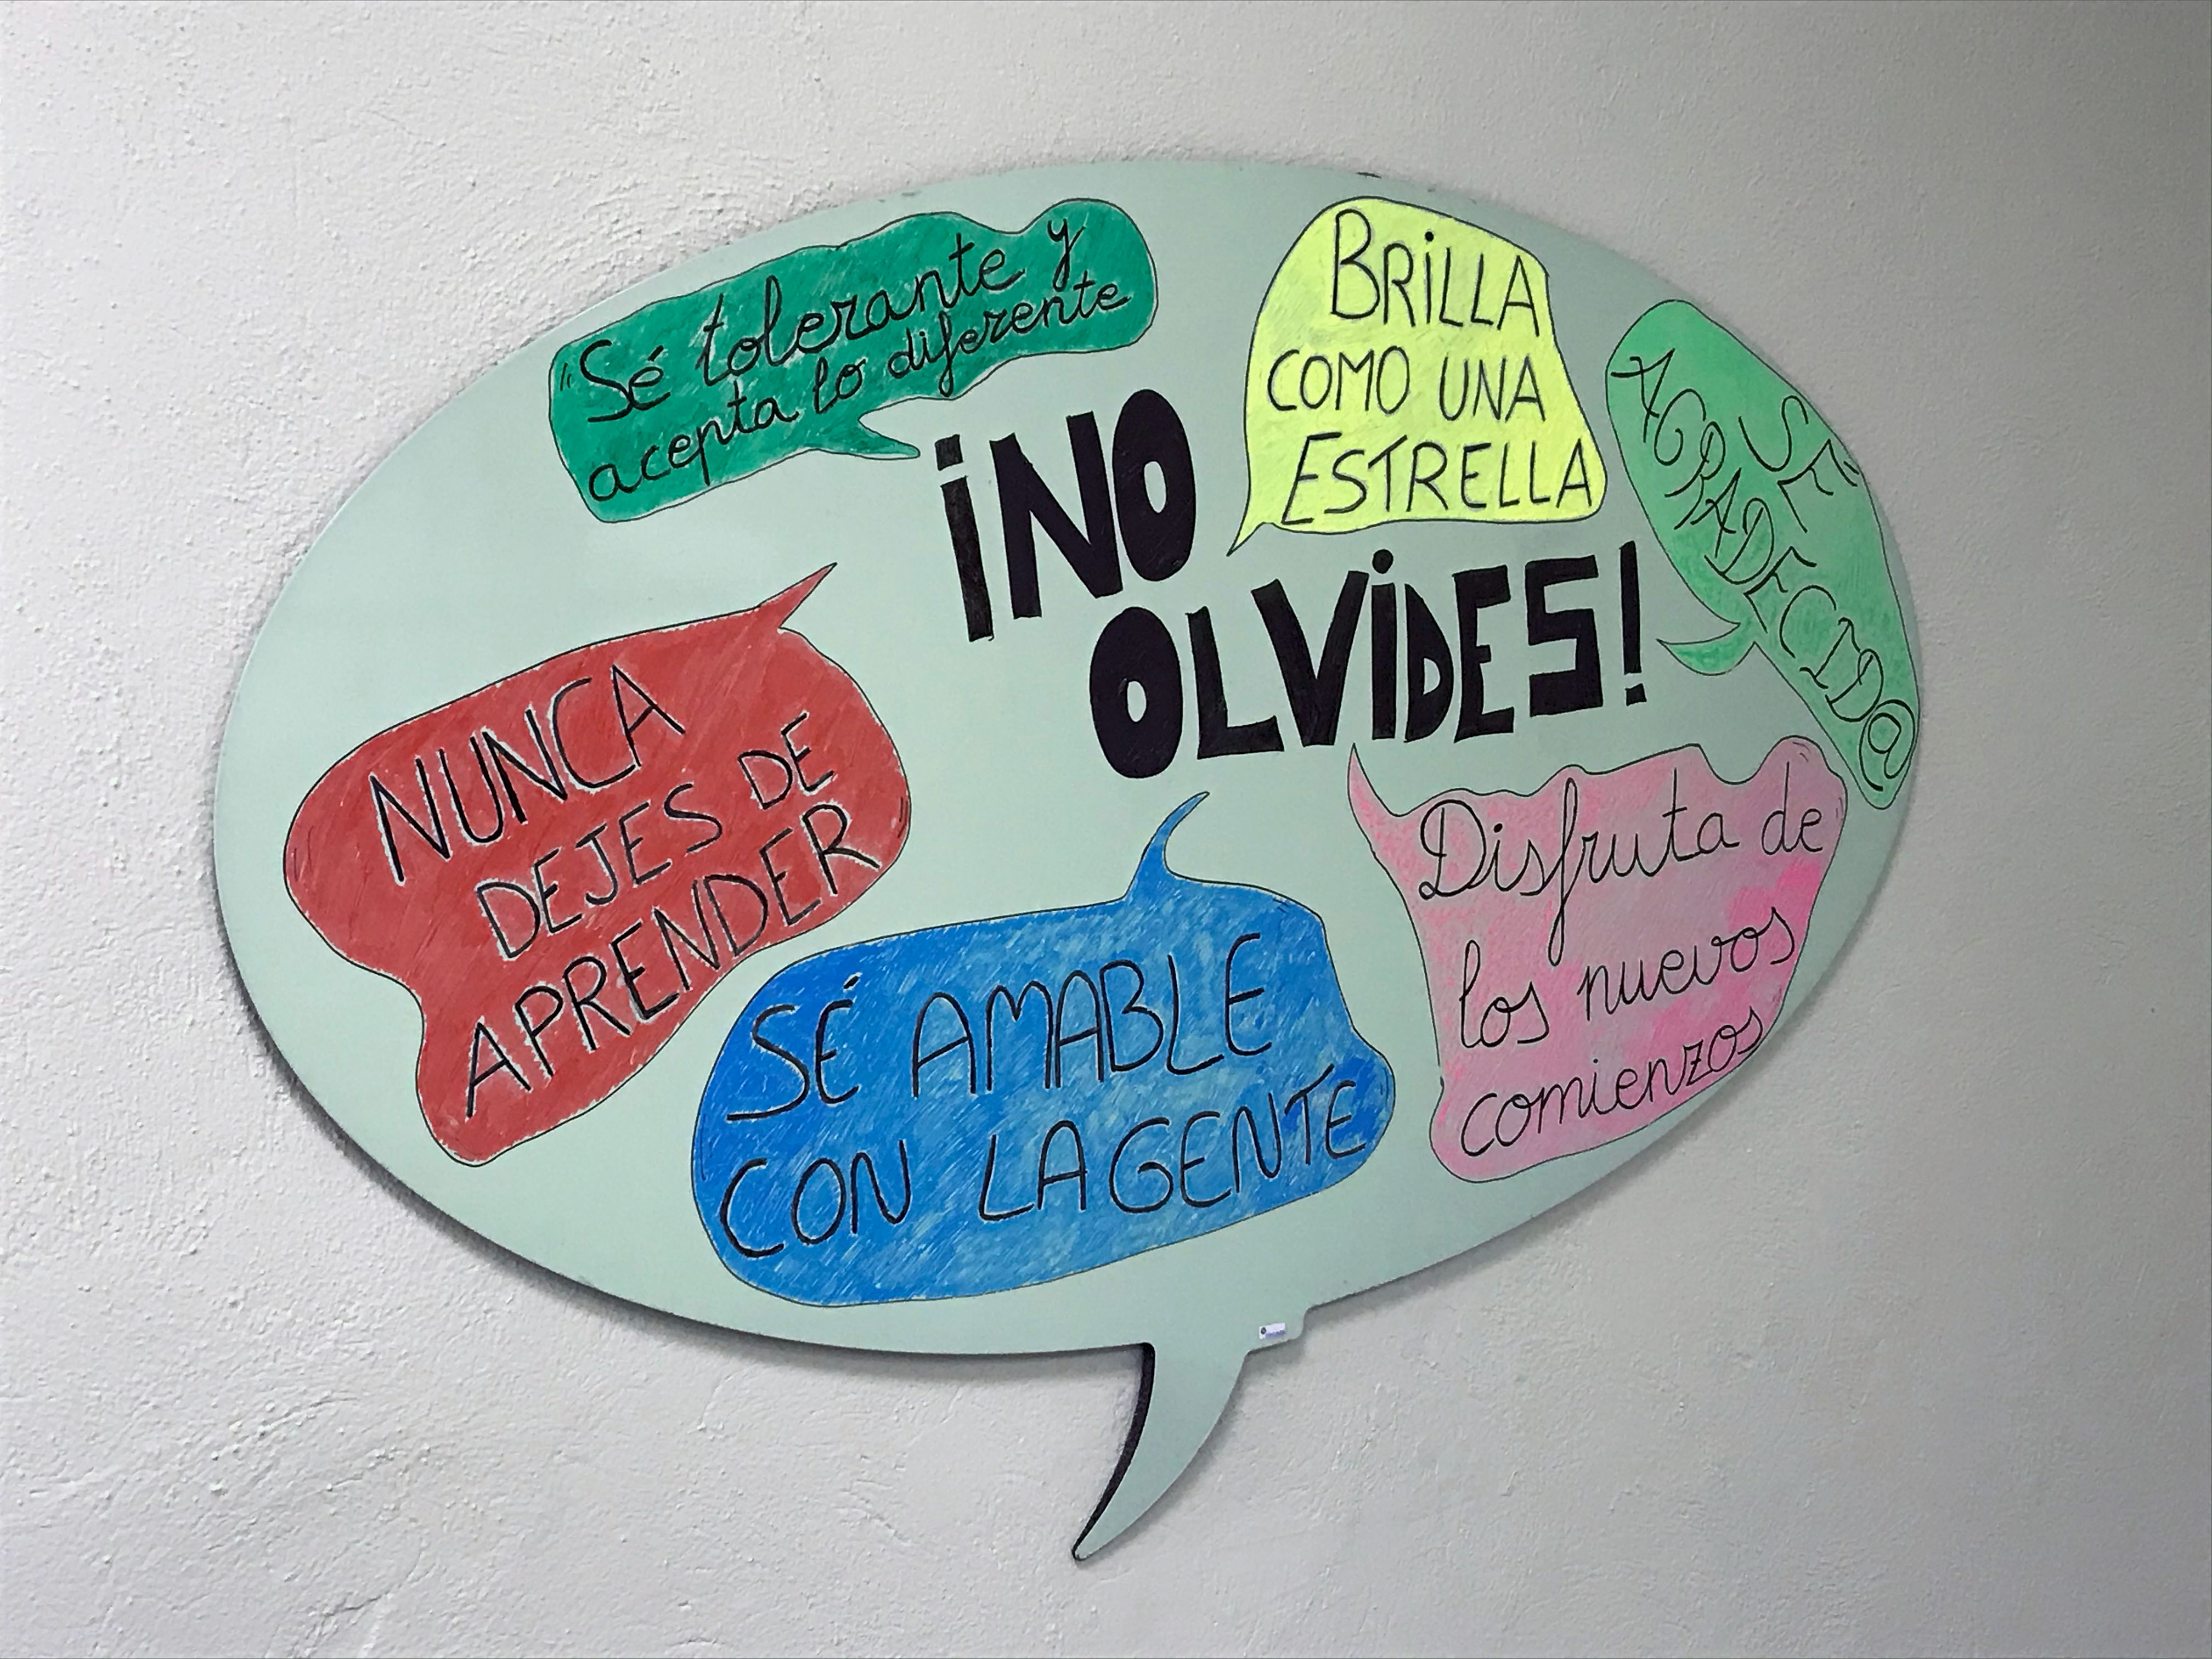 "Sé tolerante y
acepta lo diferente
BRiLLA
COMO UNA
ESTRELLA
SÉ
AGRADECID@
¡NO
OLViDES!
NUNCA
DEJES DE
APRENDER
SÉ AMABLE
CON LA GENTE
Disfruta de
los nuevos
comienzos